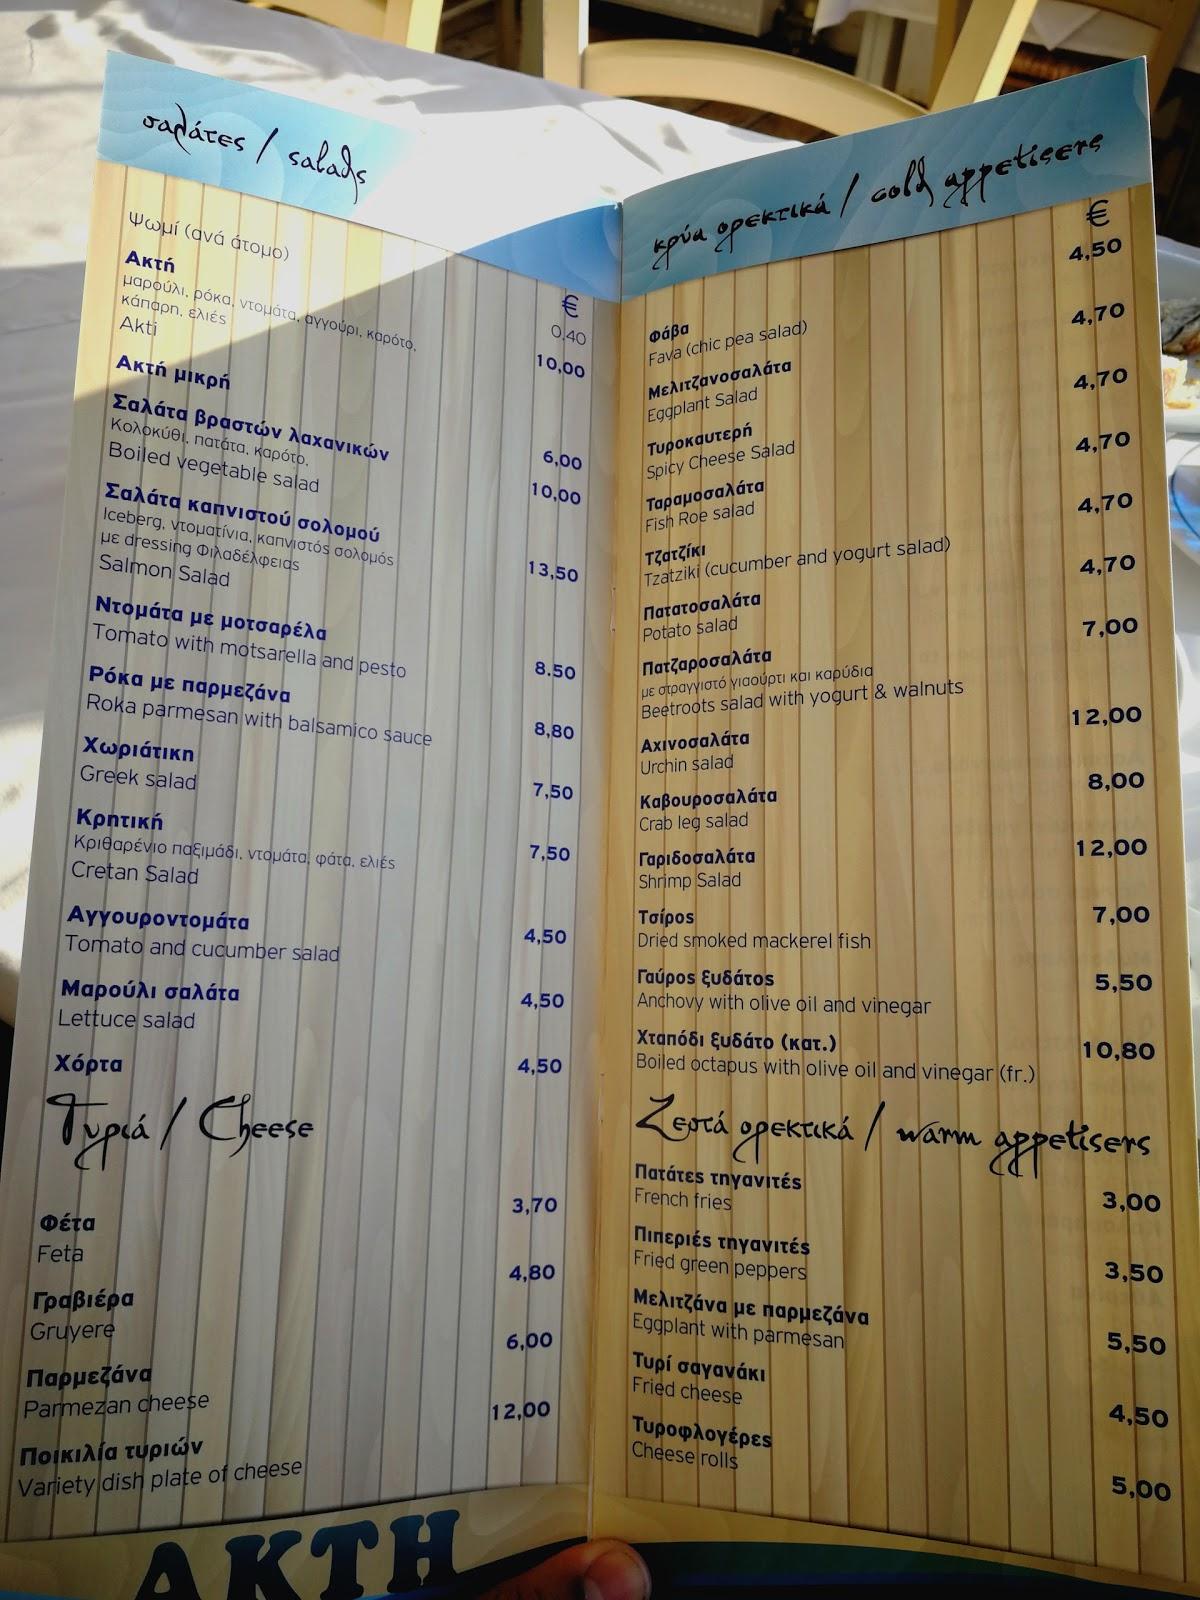 σαλάτες / salads
€
Ψωμί (ανά άτομο) 0,40
Ακτή 10,00
μαρούλι, ρόκα, ντομάτα, αγγούρι, καρότο,
κάπαρη, ελιές
Akti
Ακτή μικρή 6,00
Σαλάτα βραστών λαχανικών 10,00
Κολοκύθι, πατάτα, καρότο,
Boiled vegetable salad
Σαλάτα καπνιστού σολομού 13,50
Iceberg, ντοματίνια, καπνιστός σολομός
με dressing Φιλαδέλφειας
Salmon Salad
Ντομάτα με μοτσαρέλα 8.50
Tomato with motsarella and pesto
Ρόκα με παρμεζάνα 8,80
Roka parmesan with balsamico sauce
Χωριάτικη 7,50
Greek salad
Κρητική 7,50
Κριθαρένιο παξιμάδι, ντομάτα, φάτα, ελιές
Cretan Salad
Αγγουροντομάτα 4,50
Tomato and cucumber salad
Μαρούλι σαλάτα 4,50
Lettuce salad
Χόρτα 4,50
Τυριά / Cheese
Φέτα 3,70
Feta
Γραβιέρα 4,80
Gruyere
Παρμεζάνα 6,00
Parmezan cheese
Ποικιλία τυριών 12,00
Variety dish plate of cheese
ΑΚΤΗ
κρύα ορεκτικά / cold appetisers
€
Φάβα 4,50
Fava (chic pea salad)
Μελιτζανοσαλάτα 4,70
Eggplant Salad
Τυροκαυτερή 4,70
Spicy Cheese Salad
Ταραμοσαλάτα 4,70
Fish Roe salad
Τζατζίκι 4,70
Tzatziki (cucumber and yogurt salad)
Πατατοσαλάτα 4,70
Potato salad
Πατζαροσαλάτα 7,00
με στραγγιστό γιαούρτι και καρύδια
Beetroots salad with yogurt & walnuts
Αχινοσαλάτα 12,00
Urchin salad
Καβουροσαλάτα 8,00
Crab leg salad
Γαριδοσαλάτα 12,00
Shrimp Salad
Τσίρος 7,00
Dried smoked mackerel fish
Γαύρος ξυδάτος 5,50
Anchovy with olive oil and vinegar
Χταπόδι ξυδάτο (κατ.) 10,80
Boiled octapus with olive oil and vinegar (fr.)
Ζεστά ορεκτικά / warm appetisers
Πατάτες τηγανιτές 3,00
French fries
Πιπεριές τηγανιτές 3,50
Fried green peppers
Μελιτζάνα με παρμεζάνα 5,50
Eggplant with parmesan
Τυρί σαγανάκι 4,50
Fried cheese
Τυροφλογέρες 5,00
Cheese rolls